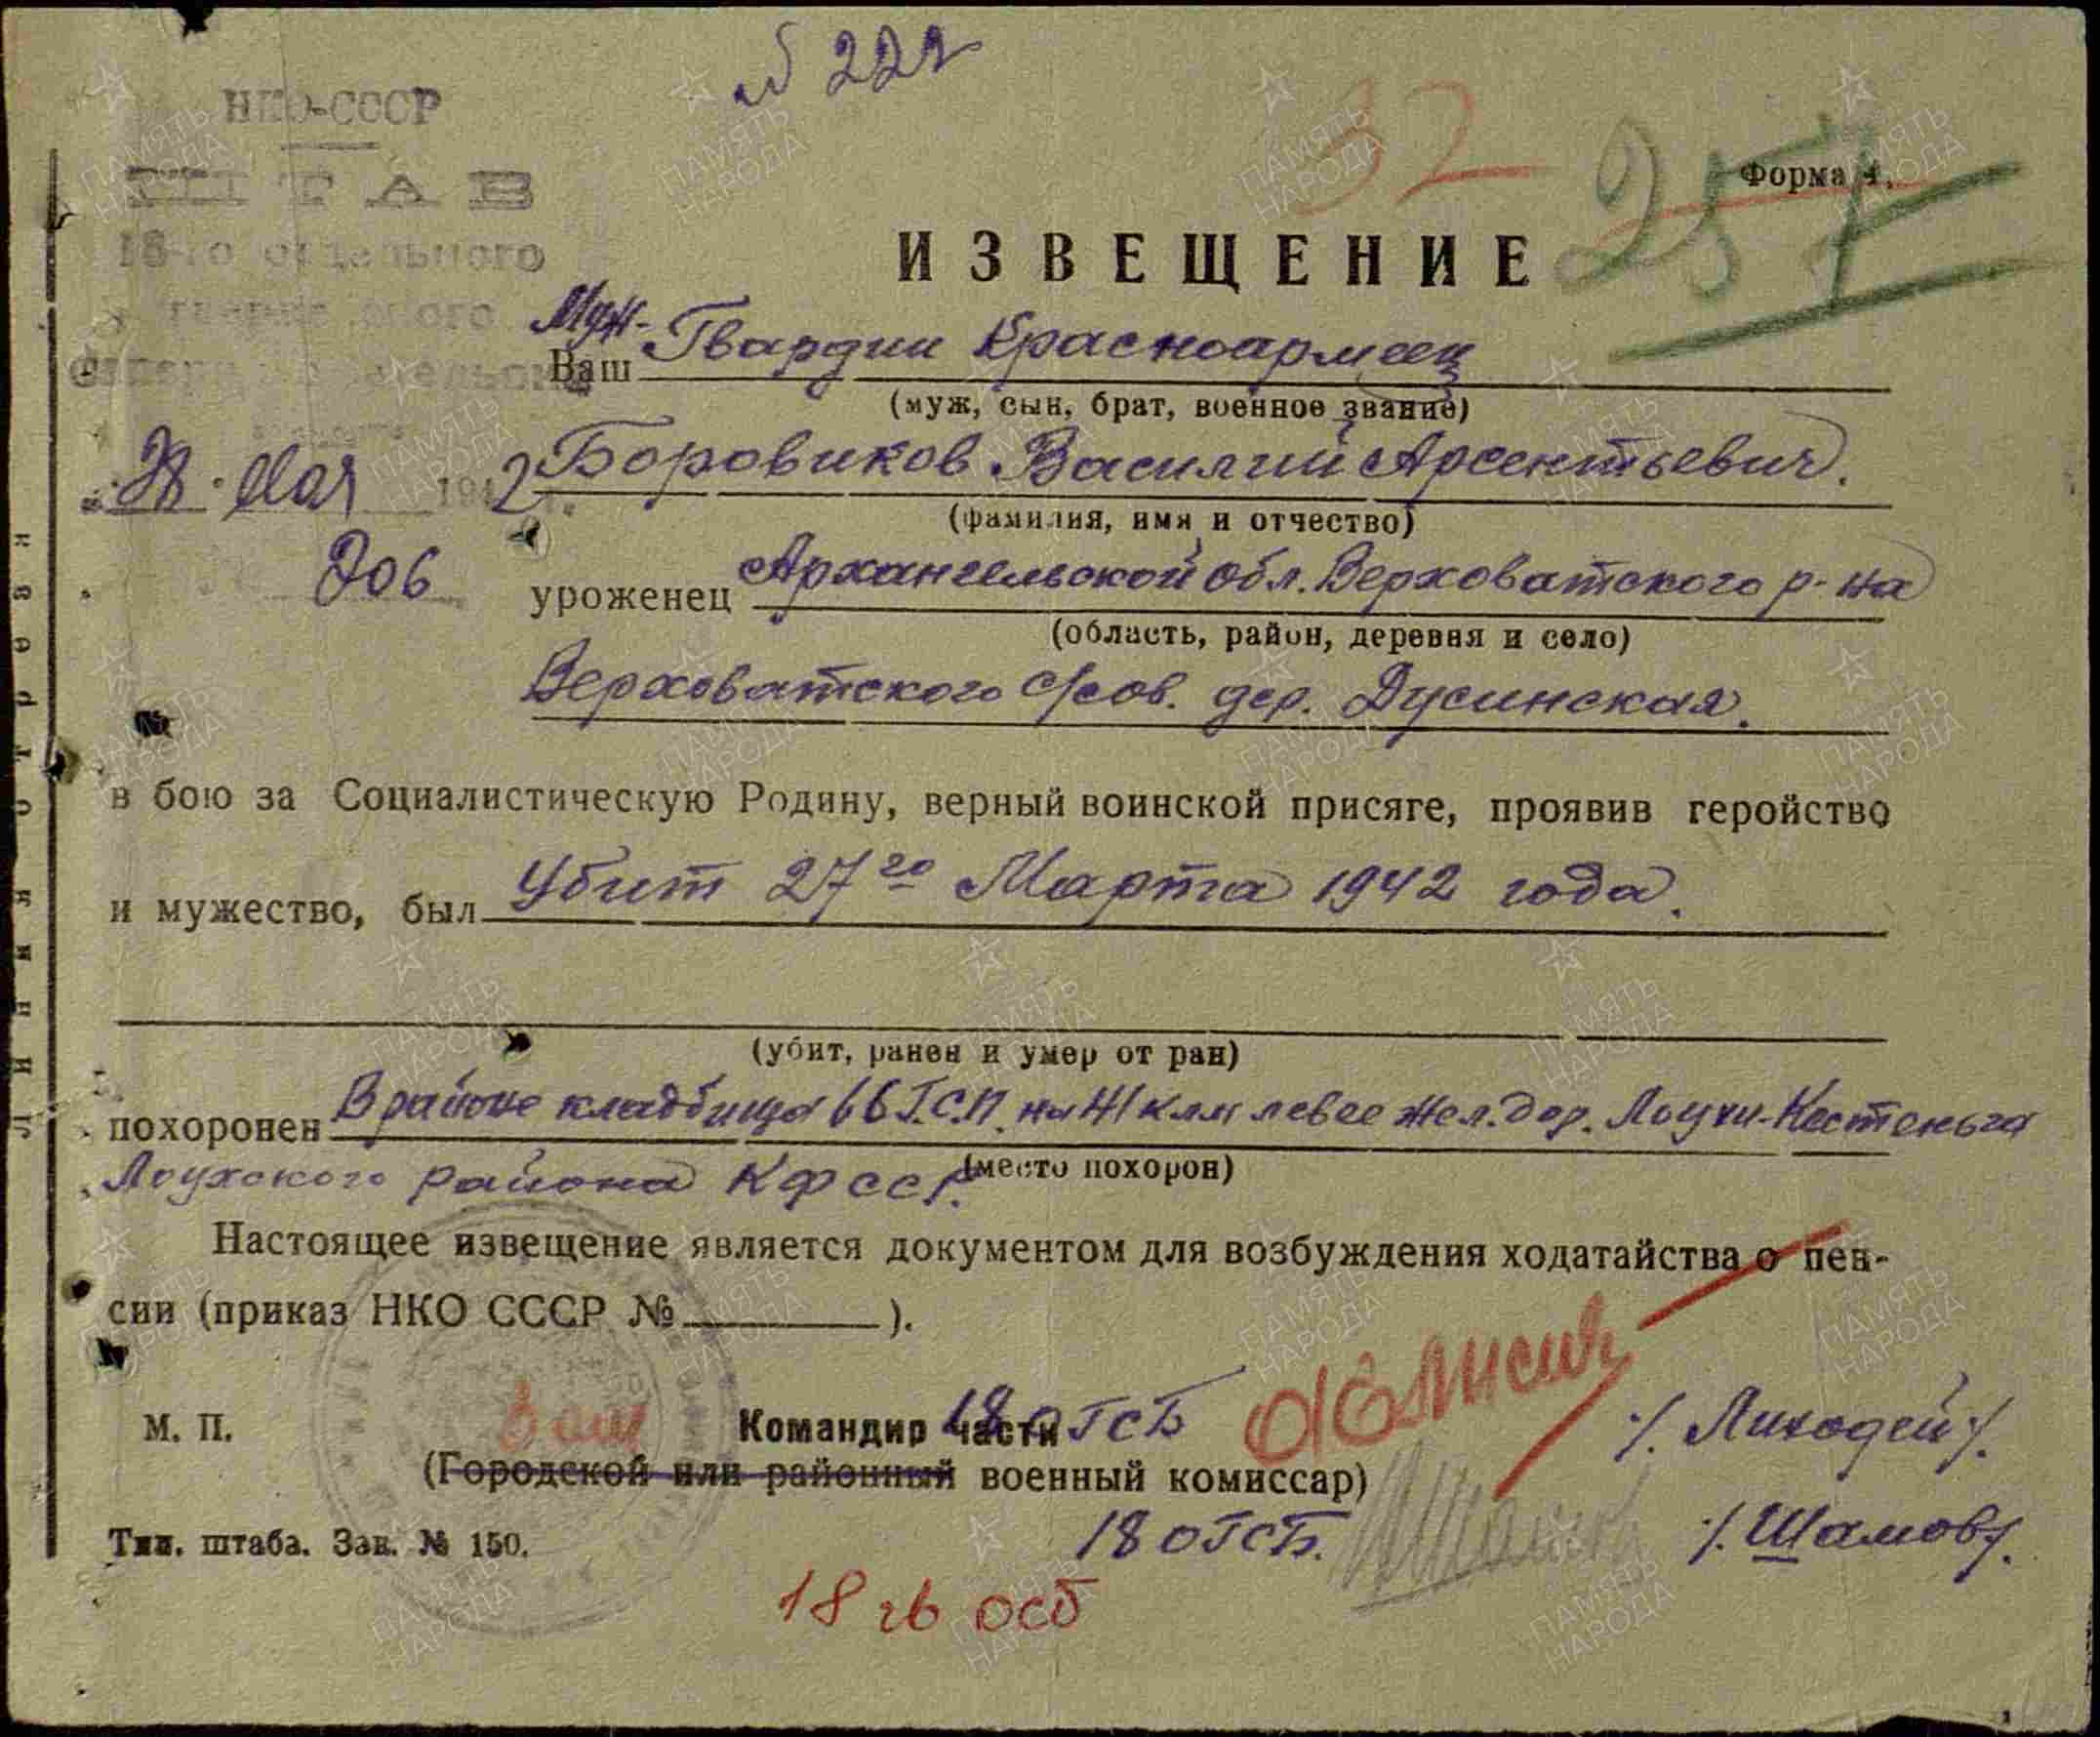 № 222
32
257
НКО-СССР
ШТАБ
18-го отдельного
гвардейского
Форма 1.
ИЗВЕЩЕНИЕ
Муж-
Ваш Гвардии Красноармеец
(муж, сын, брат, военное звание)
Мая 1942 г.
Боровиков Василий Арсентьевич.
(фамилия, имя и отчество)
906
уроженец Архангельской обл. Верховатского р-на
(область, район, деревня и село)
Верховатского с/сов. дер. Дусинская.
в бою за Социалистическую Родину, верный воинской присяге, проявив геройство
и мужество, был Убит 27го Марта 1942 года.
(убит, ранен и умер от ран)
похоронен В районе кладбища 66 Г.С.П. на 41 клм левее жел. дор. Лоухи-Кестеньга
(место похорон)
Лоухского района КФССР.
Настоящее извещение является документом для возбуждения ходатайства о пен-
сии (приказ НКО СССР № ).
М. П.
Командир части 18 оГСБ /. Лиходей /.
(Городской или районный военный комиссар)
18 оГСБ. /. Шамов /.
Тип. штаба. Зак. № 150.
18 гв осб
линия отреза
ПАМЯТЬ НАРОДА